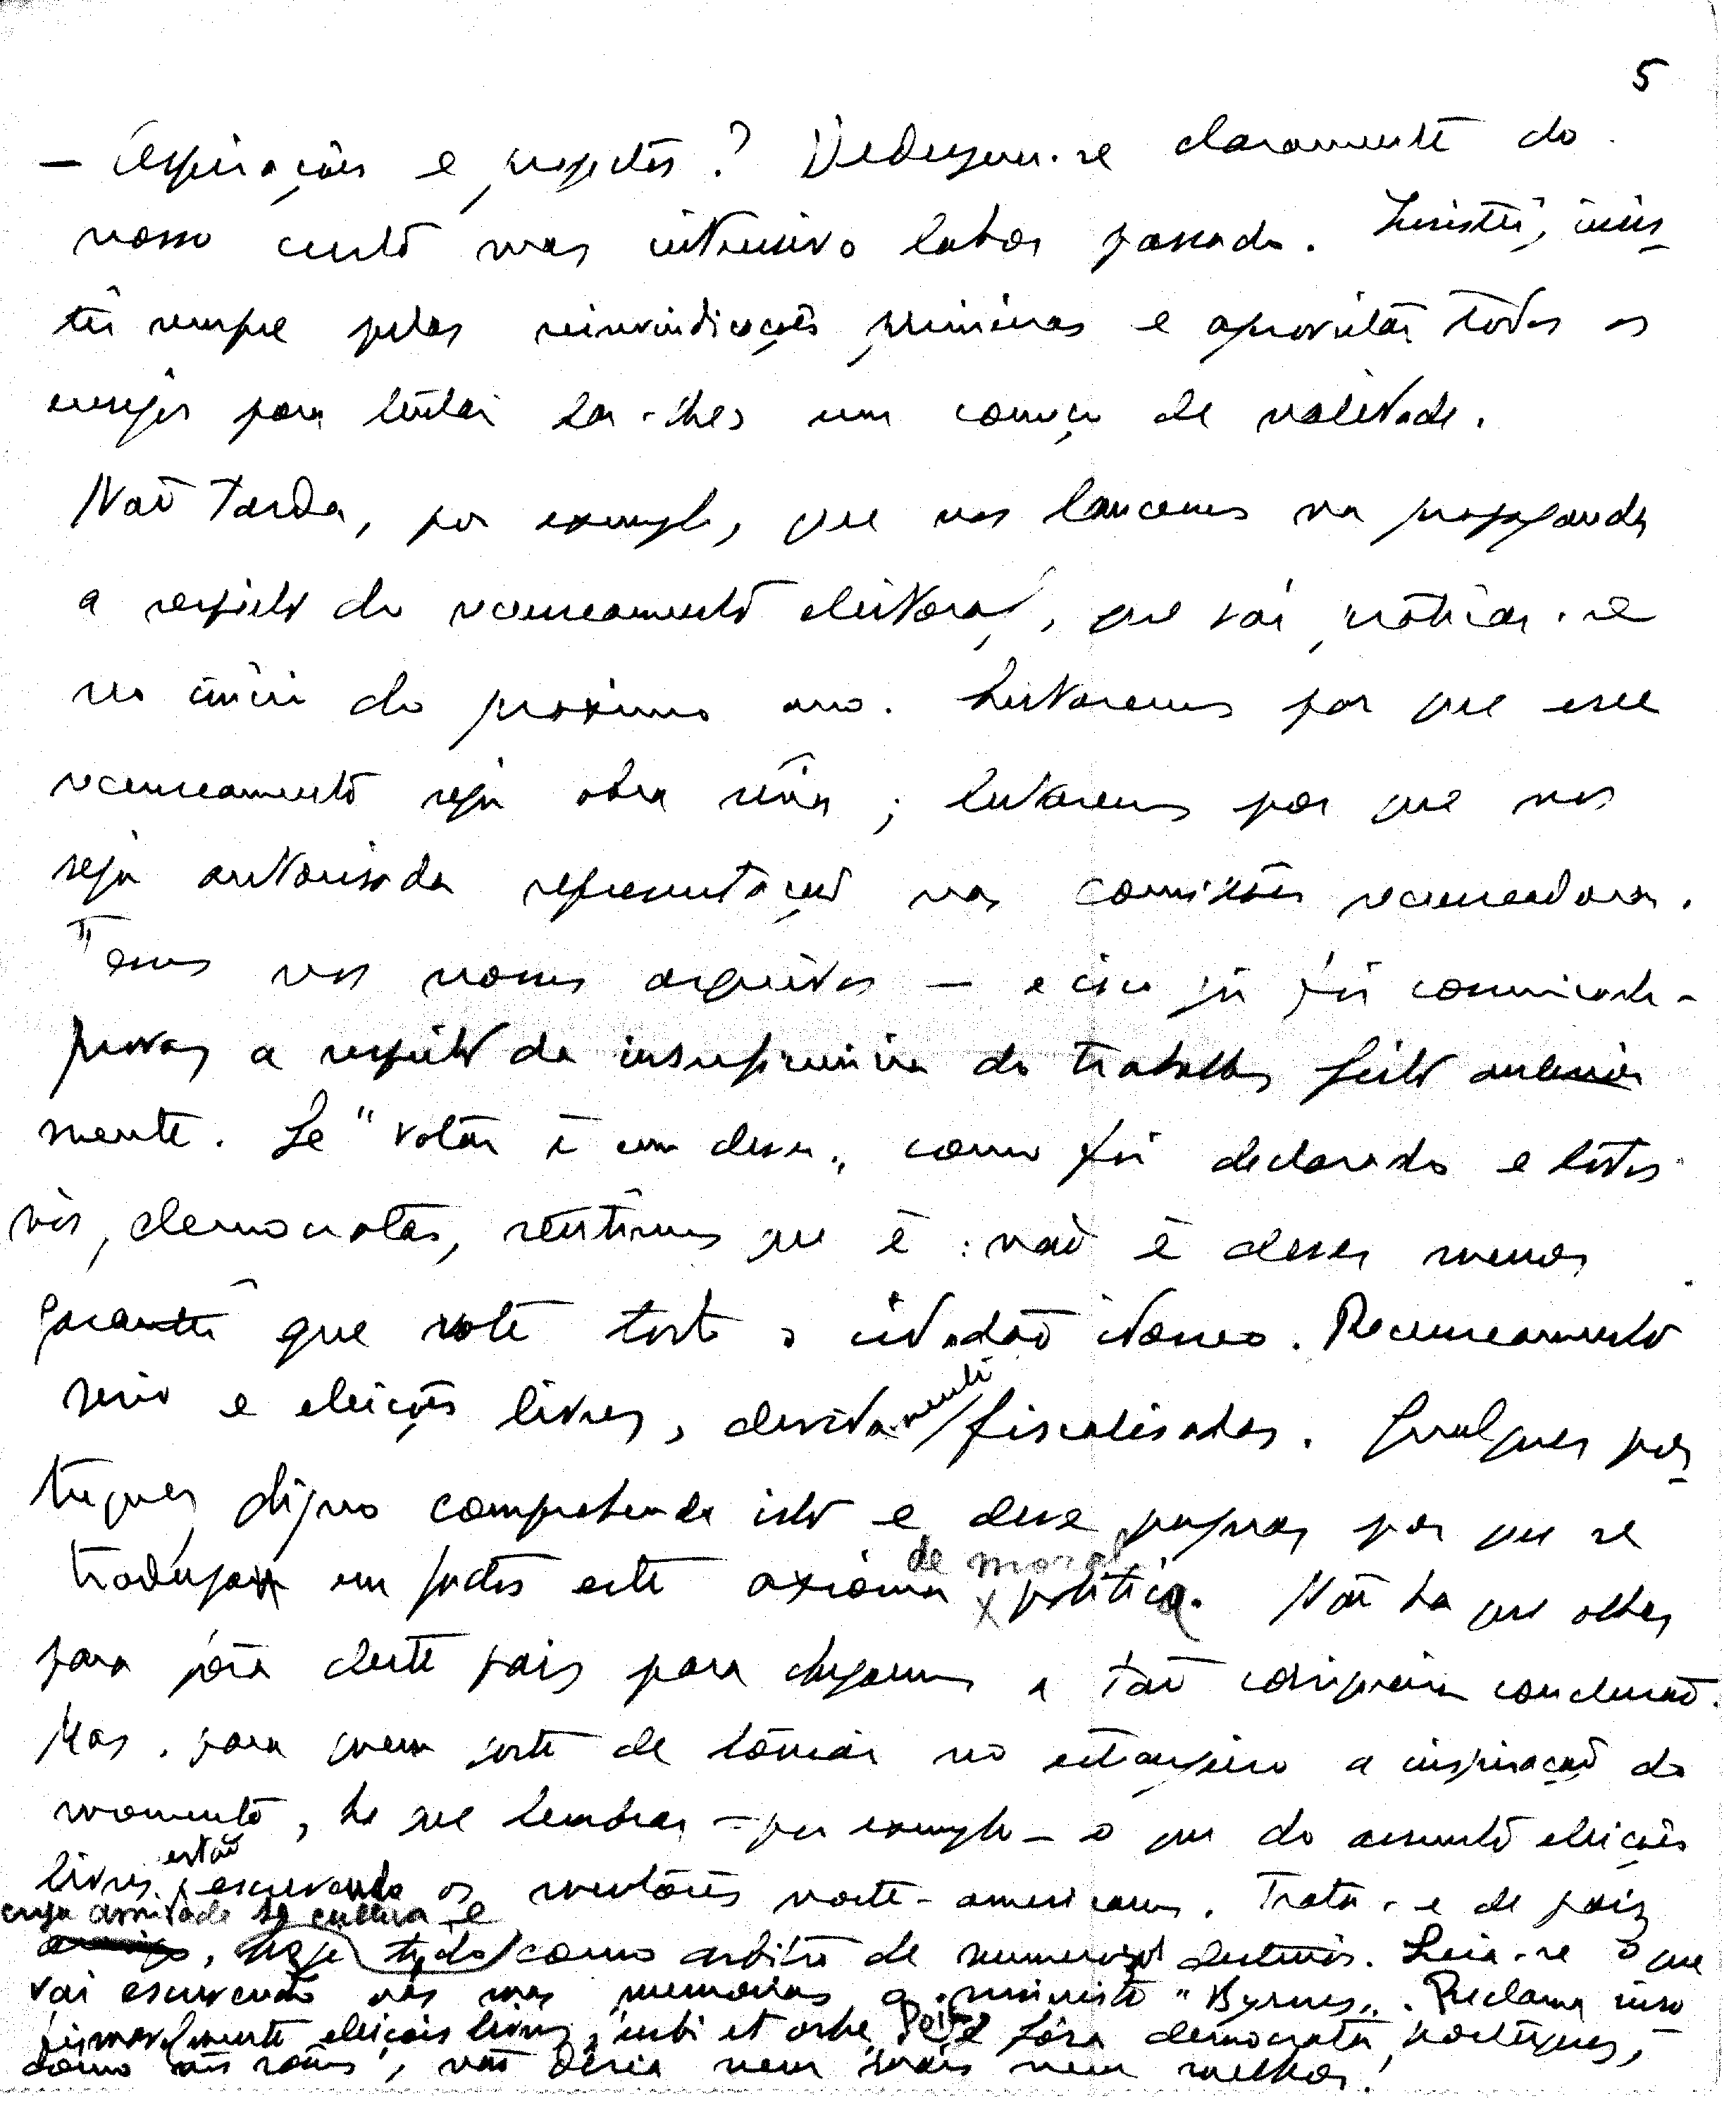 5
— Aspirações e projectos? Deduzem-se claramente do
nosso curto mas intensivo labor passado. Insistir, insis-
tir sempre pelas reinvindicações primeiras e aproveitar todos os
ensejos para tentar dar-lhes um começo de realidade.
Não tarda, por exemplo, que nos lancemos na propaganda
a respeito do recenseamento eleitoral, que vai praticar-se
no início do proximo ano. Lutaremos por que esse
recenseamento seja obra séria; lutaremos por que nos
seja autorisada representação nas comissões recenseadoras.
Temos nos nossos arquivos — e isso já foi comunicado —
provas a respeito da insuficiencia do trabalho feito anterior
mente. Se "votar é um dever", como foi declarado e todos
nós, democratas, sentimos que é: não é dever menor
garantir que vote todo o cidadão idoneo. Recenseamento
serio e eleições livres, devidamente fiscalisadas. Qualquer por-
tuguez digno compreende isto e deve pugnar por que se
traduza em factos este axioma de moral politica. Não ha que olhar
para fóra deste paiz para chegarmos a tão comesinha conclusão.
Mas, para quem goste de tomar no estrangeiro a inspiração do
momento, ha que lembrar — por exemplo — o que do assunto eleições
livres estão escrevendo os mentores norte-americanos. Trata-se de paiz
cuja amizade se cultiva e
hoje tido como arbitro de numerosos destinos. Leia-se o que
vai escrevendo nas suas memorias o ministro "Byrnes". Reclama isso
eleições livres, urbi et orbe. fôra democrata portuguez,
como nós somos, não diria nem mais nem melhor!